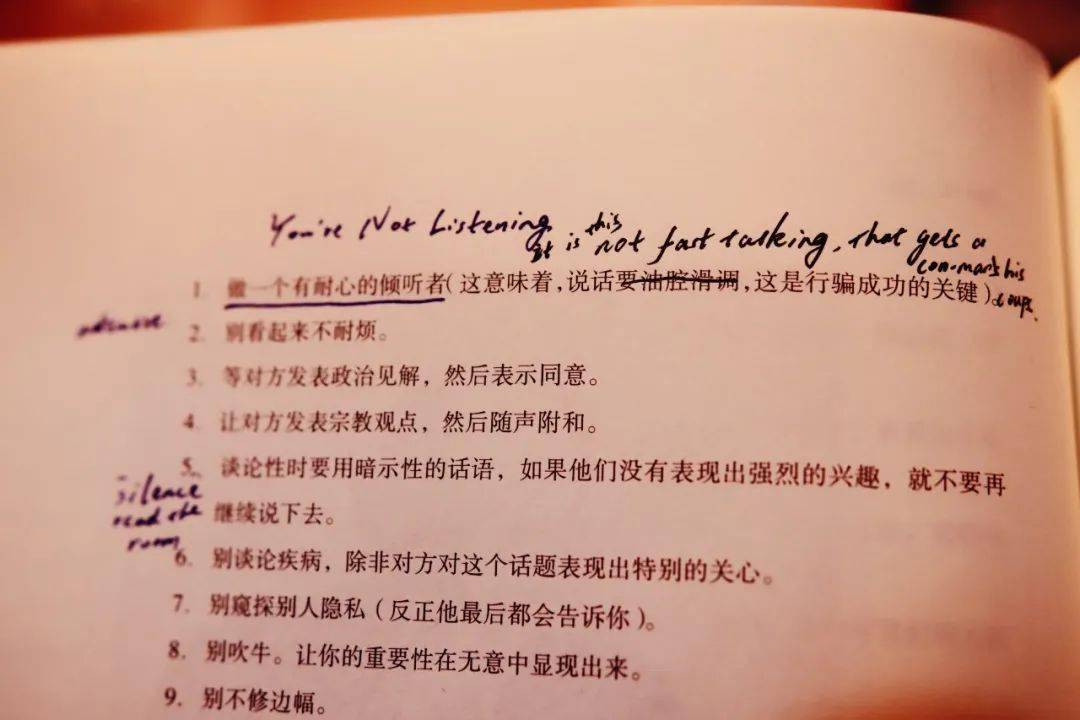 You're Not Listening
It is this not fast talking, that gets a
con-man his
coups.
1. 做一个有耐心的倾听者(这意味着,说话要油腔滑调,这是行骗成功的关键)
2. 别看起来不耐烦。
3. 等对方发表政治见解，然后表示同意。
4. 让对方发表宗教观点，然后随声附和。
5. 谈论性时要用暗示性的话语，如果他们没有表现出强烈的兴趣，就不要再
silence
read the
room
继续说下去。
6. 别谈论疾病，除非对方对这个话题表现出特别的关心。
7. 别窥探别人隐私(反正他最后都会告诉你)。
8. 别吹牛。让你的重要性在无意中显现出来。
9. 别不修边幅。